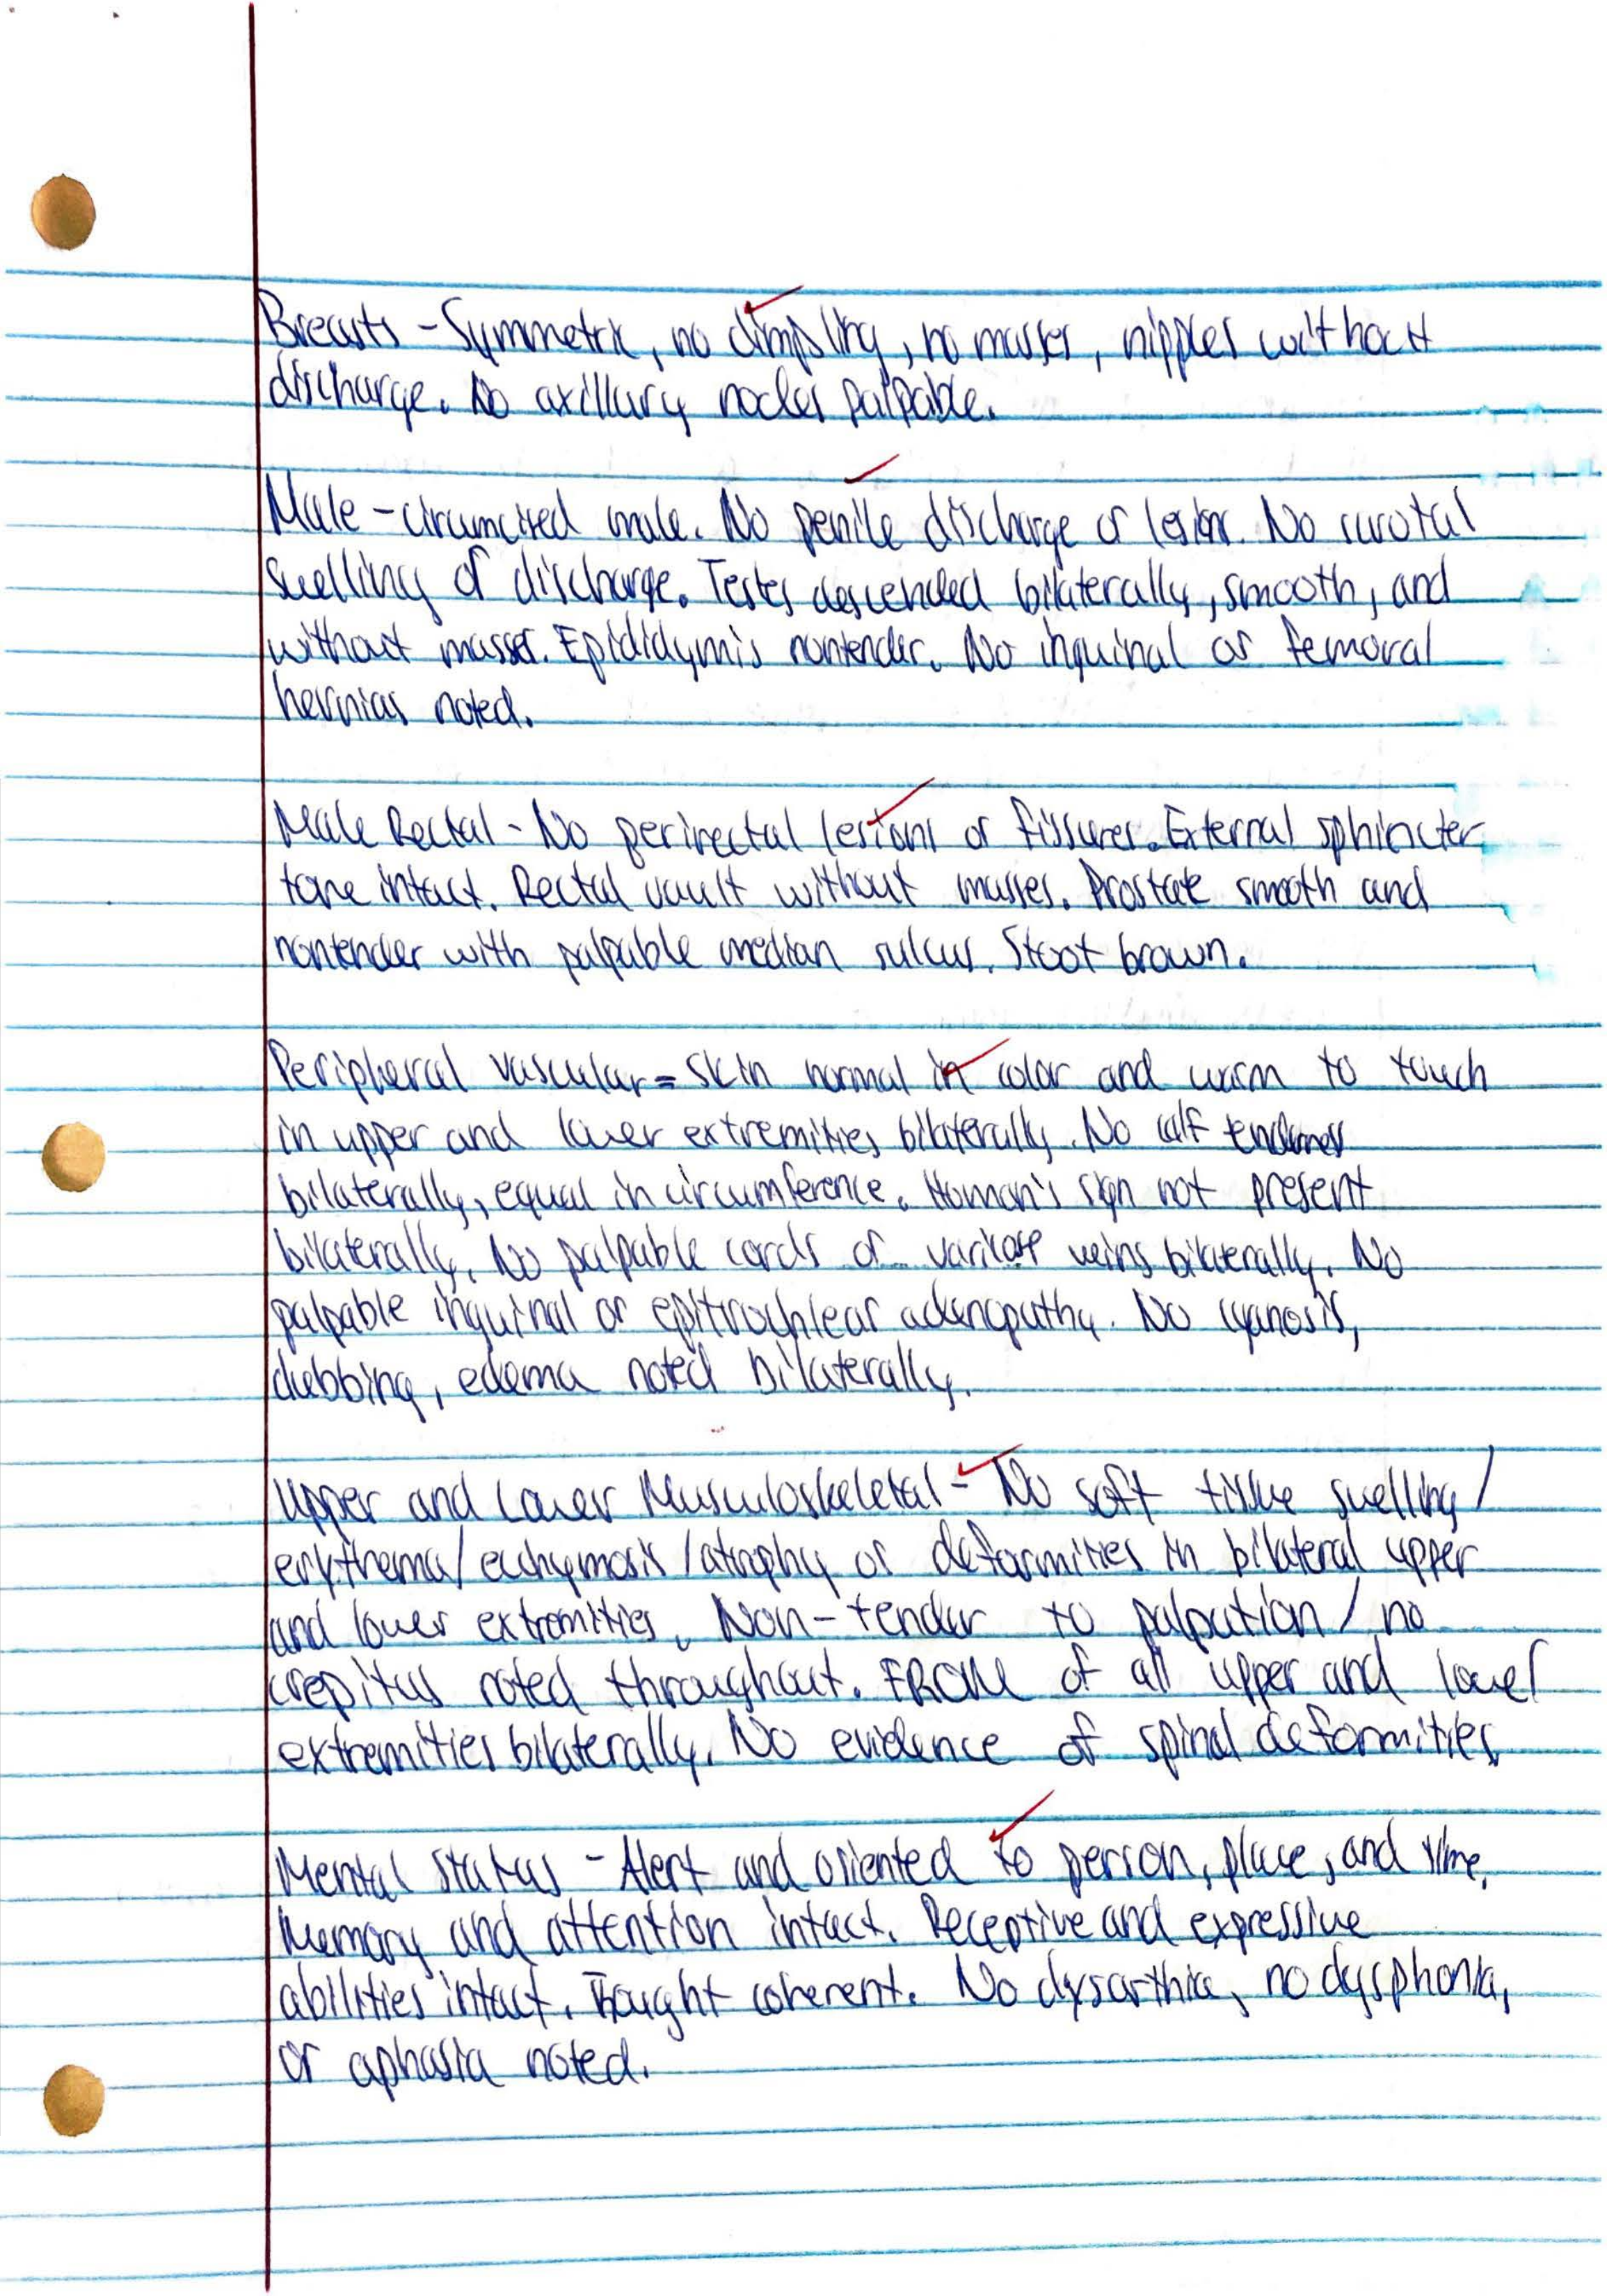 Breasts - Symmetric, no dimpling, no masses, nipples without
discharge. No axillary nodes palpable.
Male - circumcised male. No penile discharge or lesion. No scrotal
swelling or discharge. Testes descended bilaterally, smooth, and
without masses. Epididymis nontender. No inguinal or femoral
hernias noted.
Male Rectal - No perirectal lesions or fissures. External sphincter
tone intact. Rectal vault without masses. Prostate smooth and
nontender with palpable median sulcus. Stoot brown.
Peripheral vascular = Skin normal in color and warm to touch
in upper and lower extremities bilaterally. No calf tenderness
bilaterally, equal in circumference. Homan's sign not present
bilaterally. No palpable cords or varicose veins bilaterally. No
palpable inguinal or epitrochlear adenopathy. No cyanosis,
clubbing, edema noted bilaterally.
Upper and Lower Musculoskeletal - No soft tissue swelling/
erythema/ecchymosis/atrophy or deformities in bilateral upper
and lower extremities. Non-tender to palpation/no
crepitus noted throughout. FROM of all upper and lower
extremities bilaterally. No evidence of spinal deformities.
Mental Status - Alert and oriented to person, place, and time.
Memory and attention intact. Receptive and expressive
abilities intact. Thought coherent. No dysarthia, no dysphonia,
or aphasia noted.